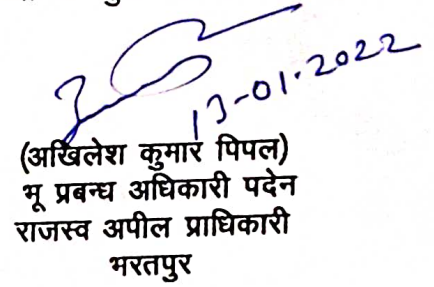 13-01-2022
(अखिलेश कुमार पिपल)
भू प्रबन्ध अधिकारी पदेन
राजस्व अपील प्राधिकारी
भरतपुर